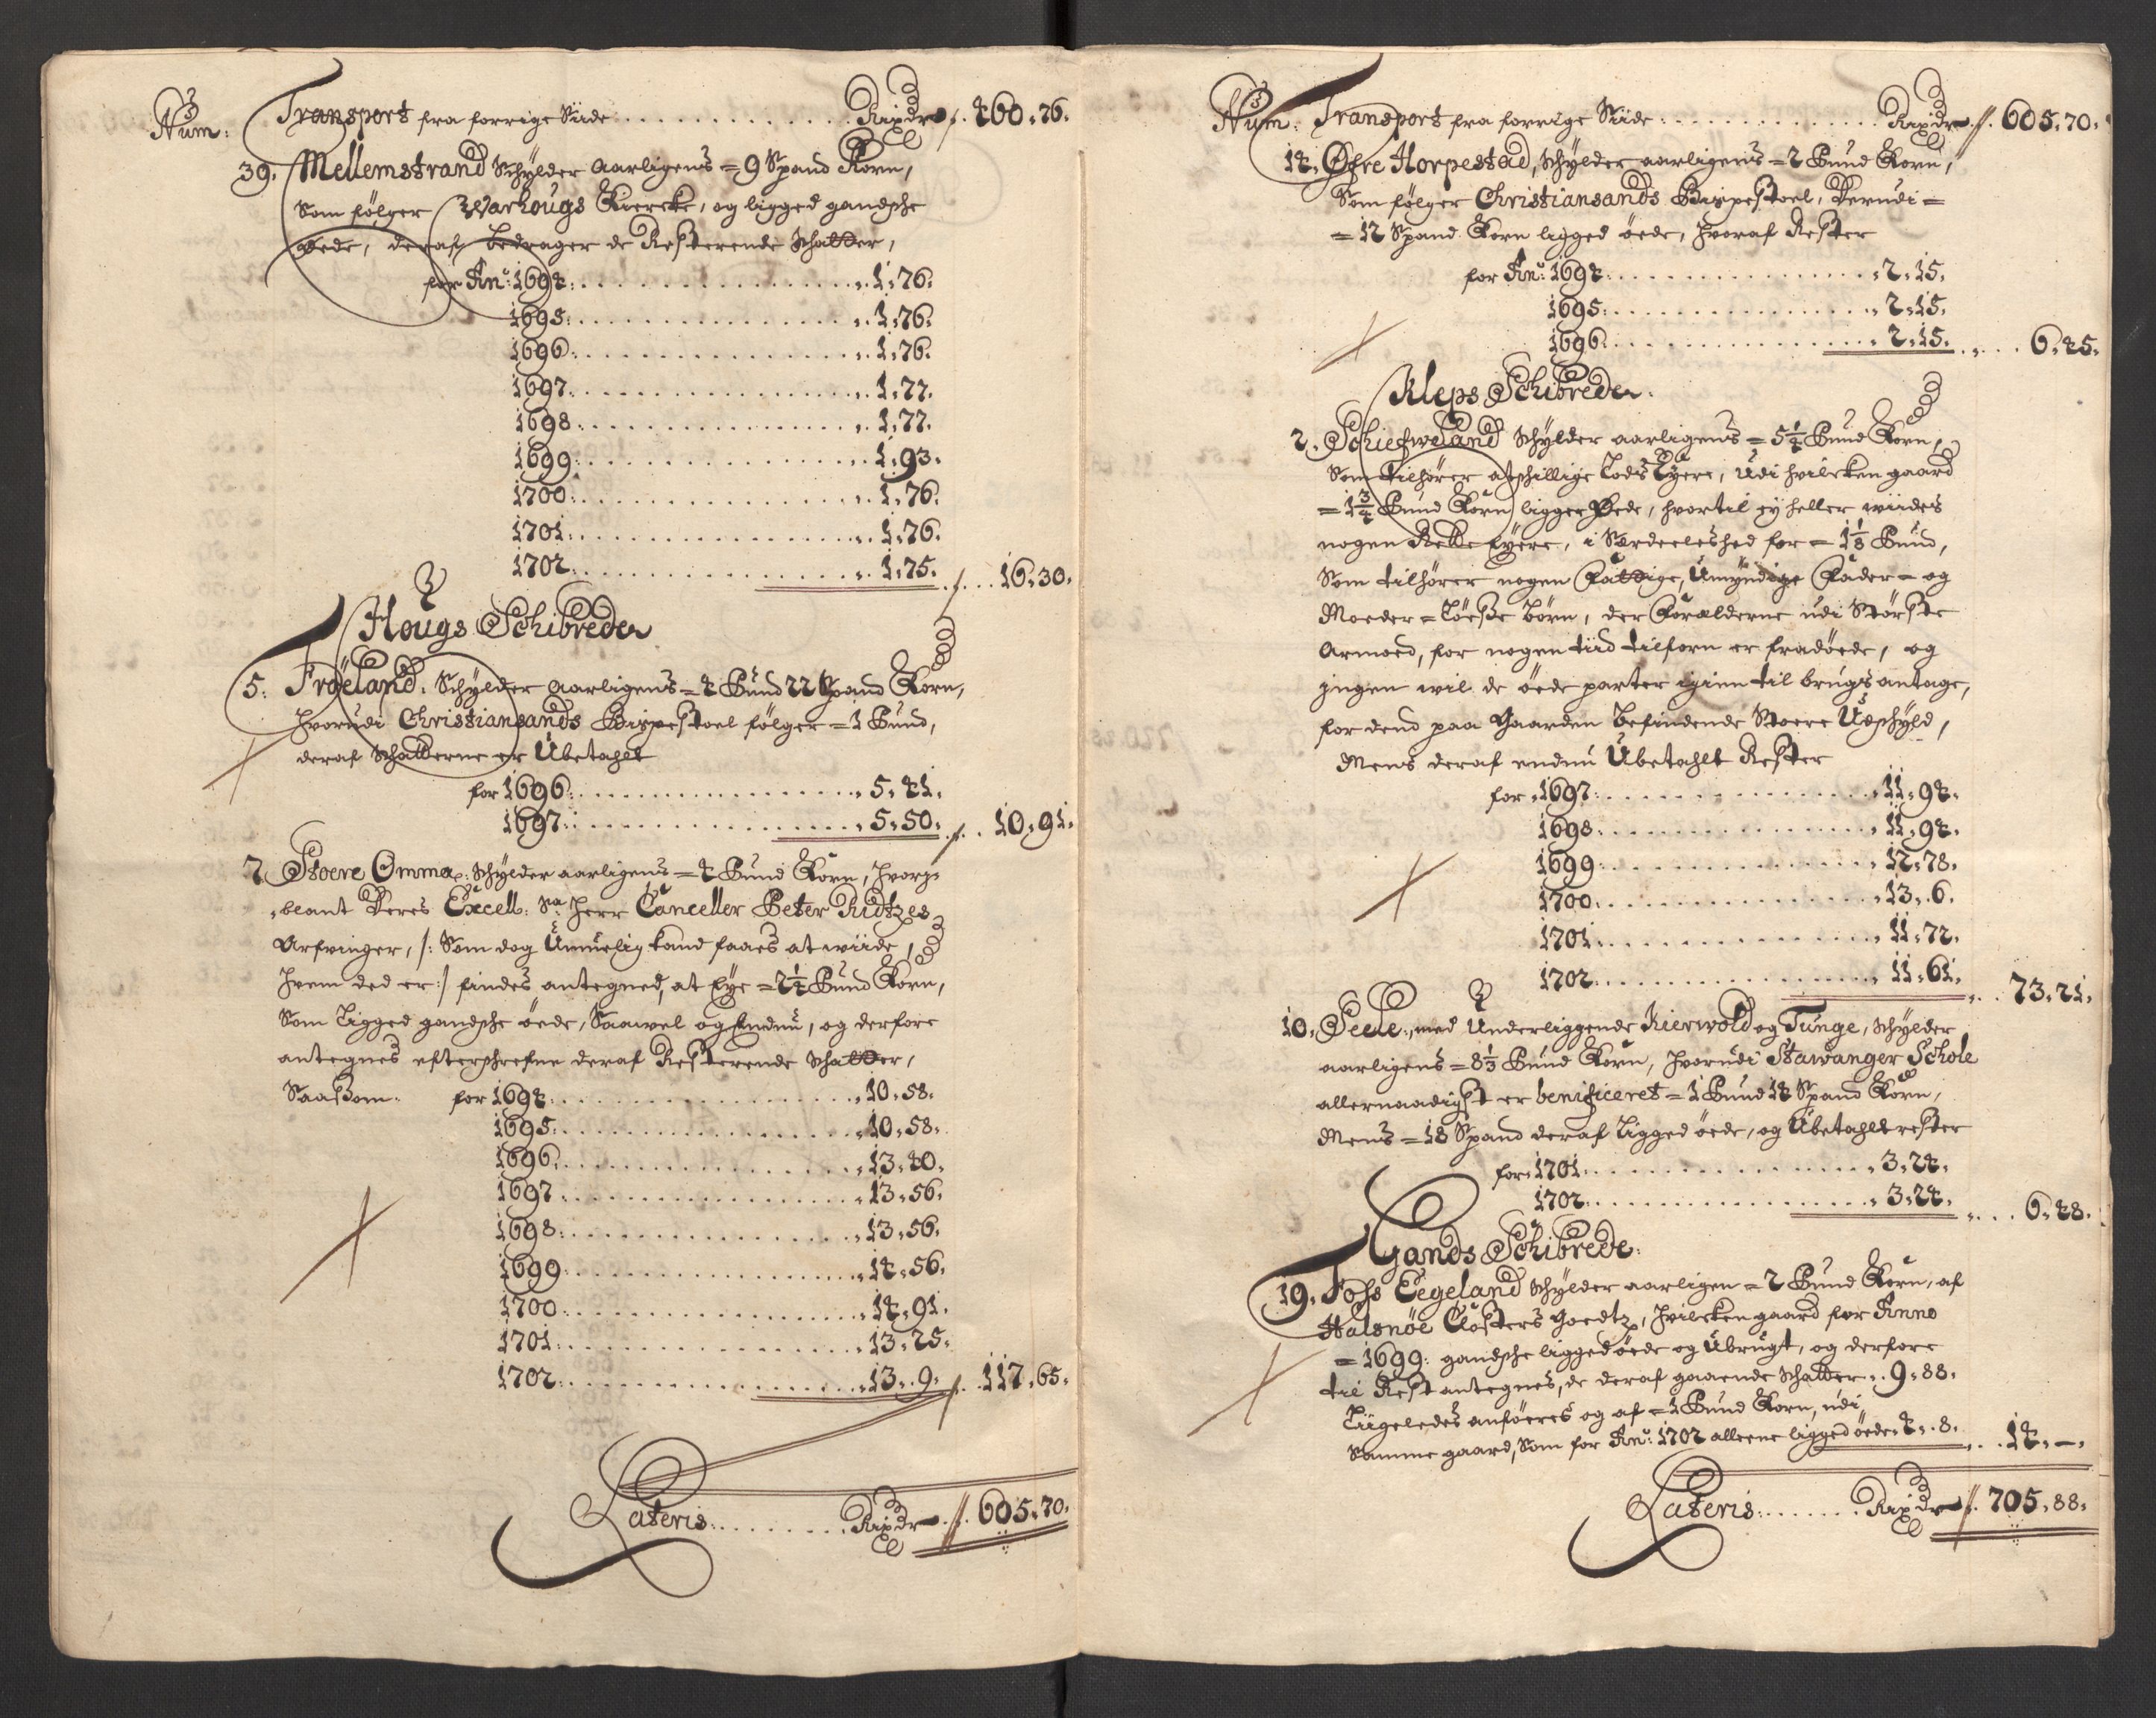 Num: Transport fra forrige Siide . . . . . . Rixdr 460,76.
39. Mellemstrand Schylder Aarligens = 9 Spand Korn,
Som følger Warhougs Kiercke, og ligged gandsche
øede, deraf bedrager de Resterende Schatter,
for An: 1694: . . . . . . 1,76.
1695: . . . . . . 1,76.
1696: . . . . . . 1,76.
1697: . . . . . . 1,77.
1698: . . . . . . 1,77.
1699: . . . . . . 1,93.
1700: . . . . . . 1,76.
1701: . . . . . . 1,76.
1702: . . . . . . 1,75. . . . 16,30.
Hougs Schibreder
5. Fröeland. Schylder aarligens = 4 Pund 22 Spand Korn,
hvorudi Christiansands Bispestoel følger = 1 Pund,
deraf Schatterne er Ubetahlt
for 1696: . . . . . . 5,41.
1697: . . . . . . 5,50. . . 10,91.
7. Stoere Omma: Schylder aarligens = 4 Pund Korn, hvorj-
-blant Deres Excell: Sa: Herr Canceller Peter Ridtzes
Arfvinger, /: Som dog Umuelig kand faaes at wiide,
hvem ded er :/ findes antegned, at Eye = 2¼ Pund Korn,
Som Ligged gandsche øede, Saawel og Endnu, og derfore
antegnes efterschrefne deraf Resterende Schatter,
Saasom. for 1694: . . . . . . 10,58.
1695: . . . . . . 10,58.
1696: . . . . . . 13,40.
1697: . . . . . . 13,56.
1698: . . . . . . 13,56.
1699: . . . . . . 14,56.
1700: . . . . . . 14,91.
1701: . . . . . . 13,25.
1702: . . . . . . 13,.9. . . 117,65.
Lateris: . . . . . . Rixdr 605,70.
Num: Transport fra forrige Siide: . . . . . . Rixdr 605,70.
14. Øfre Horpestad, Schylder aarligens = 2 Pund Korn,
Som følger Christiansands Bispestoel, Derudi =
= 12 Spand Korn ligged øede, hvoraf Rester
for An: 1694: . . . . . . 2,15.
1695: . . . . . . 2,15.
1696: . . . . . . 2,15. . . . 6,45.
Kleps Schibreder.
2. Schiefweland Schylder aarligens = 5¼ Pund Korn,
Som tilhører atschillige Lods Eyere, Udi hvilcken gaard
= 1¾ Pund Korn ligger Øede, hvortil ey heller wiides
nogen Rette Eyere, i Særdeeleshed for = 1⅛ Pund,
Som tilhører nogen Fattige, Umyndige Fader = og
Moeder = Løese børn, der Forælderne udi Største
Armoed, for nogen tiid tilforn er fradøede, og
jngen wil de øede parter igien til brugs antage,
for dend paa Gaarden befindende Stoere Udschyld,
Mens deraf endnu Ubetahlt Rester
for 1697: . . . . . . 11,94.
1698: . . . . . . 11,94.
1699: . . . . . . 12,78.
1700: . . . . . . 13,.6.
1701: . . . . . . 11,72.
1702: . . . . . . 11,61. . . 73,21.
10. Seele: med Underliggende Kierwold og Tunge, Schylder
aarligens = 8⅓ Pund Korn, hvorudi Stawanger Schole
allernaadigst er benificeret = 1 Pund 18 Spand Korn,
Mens = 18 Spand deraf Ligged øede, og Ubetahlt rester
for 1701: . . . . . . 3,24.
1702: . . . . . . 3,24. . . . 6,48.
Gands Schibrede.
19. Fohs Eegeland Schylder aarligen = 2 Pund Korn, af
Halsnöe Closters Goedtz, hvilcken gaard for Anno
= 1699: gandsche ligged øede og Ubrugt, og derfore
til Rest antegnes, de deraf gaaende Schatter . . 9,88.
Liigeledes anføeres og af = 1 Pund Korn, udi
Samme gaard, Som for An: 1702 alleene ligged øede. 4,.8. . . 14,-.
Lateris: . . . . . . Rixdr 705,88.